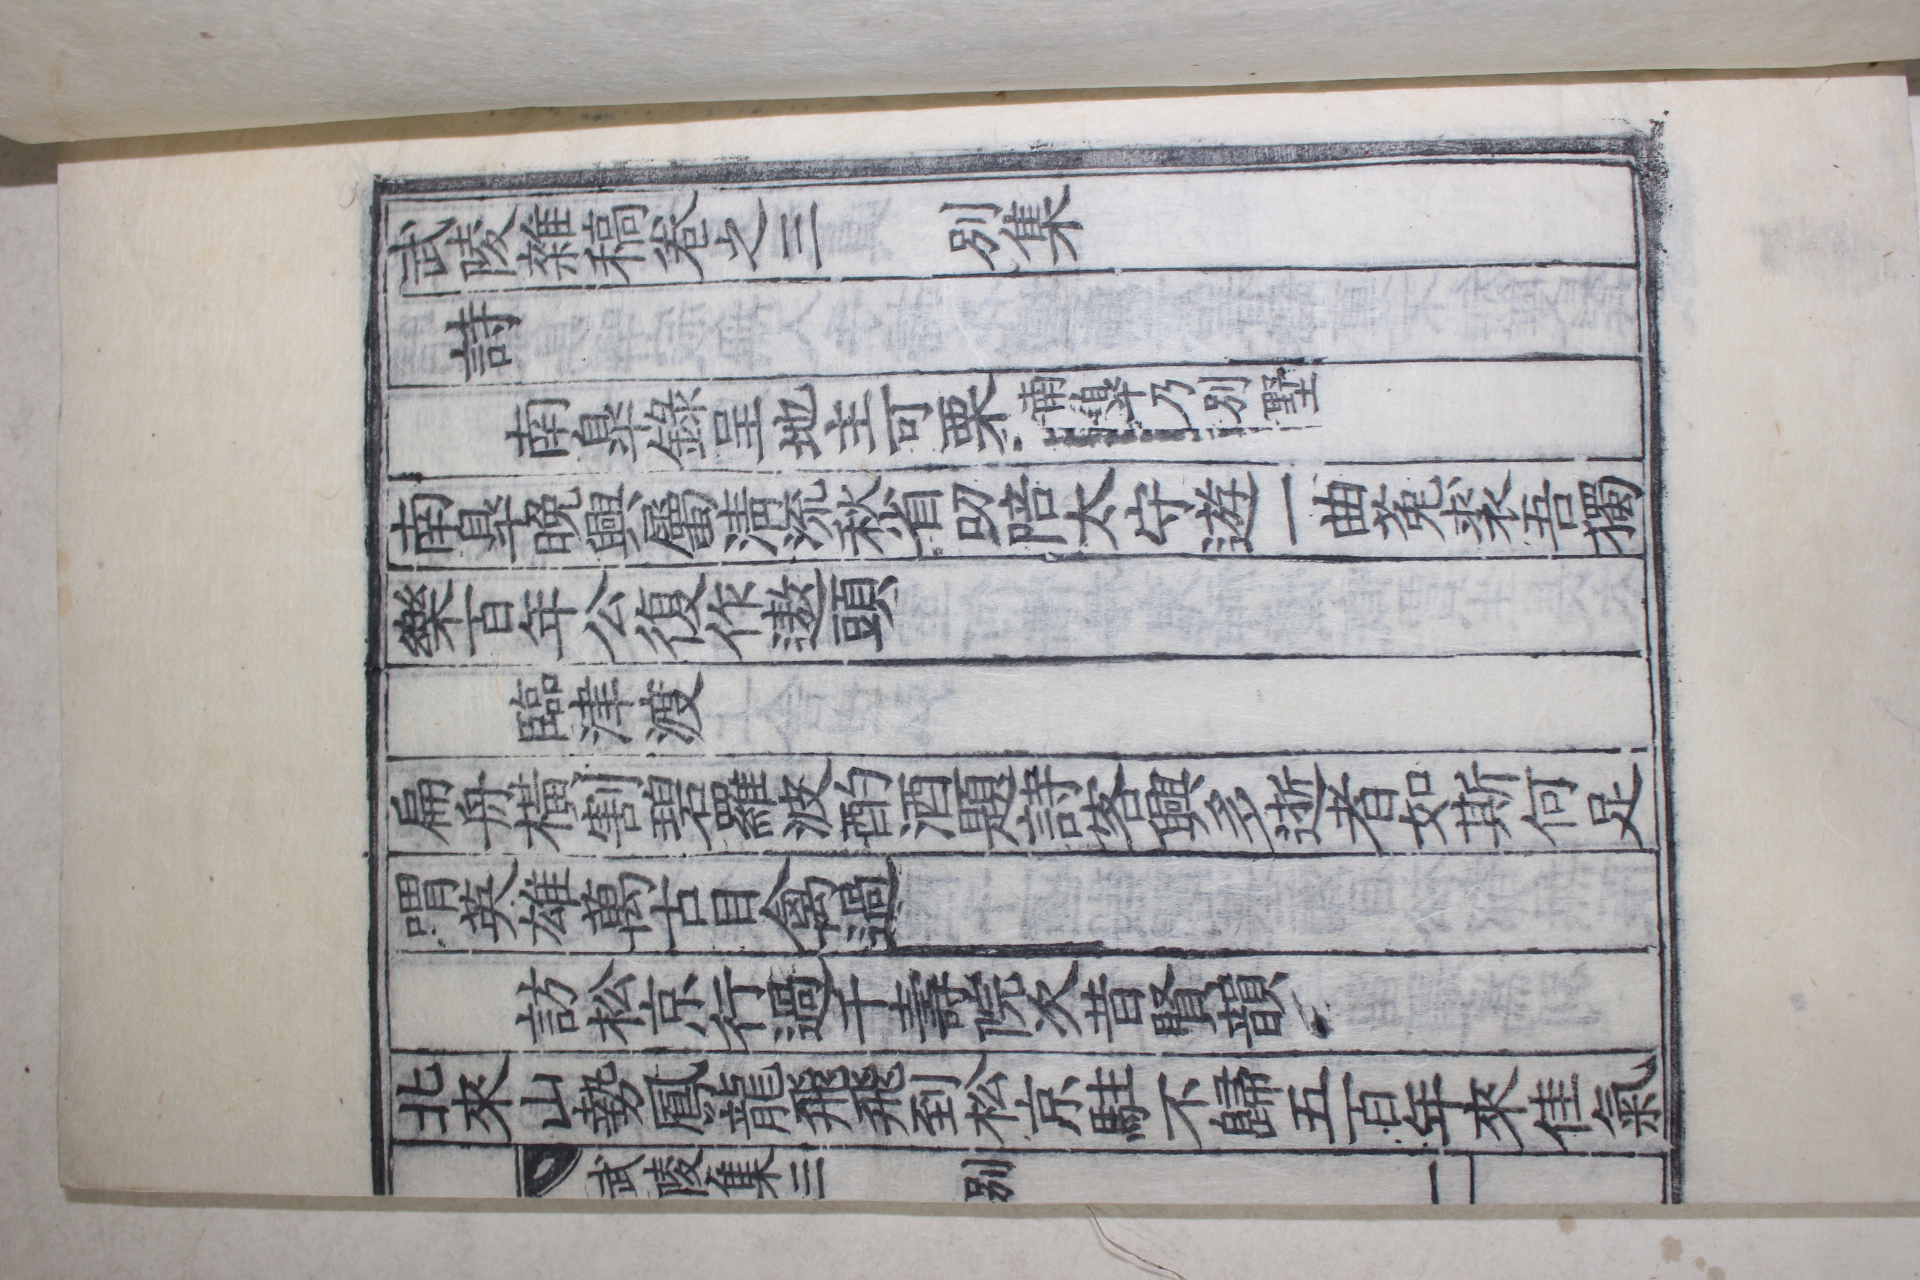 武陵雜稿卷之三 別集
詩
南皐錄呈地主可栗 南皐乃別墅
南皐晚興屬淸流秋省叨陪太守遊一曲菟裘吾獨
樂百年公復作遨頭
臨津渡
扁舟橫割碧羅波酌酒題詩客興多逝者如斯何足
謂英雄萬古目禽過
訪松京行過千壽院次昔賢韻
北來山勢鳳龍飛飛到松京駐不歸五百年來佳氣
武陵集三 別 一